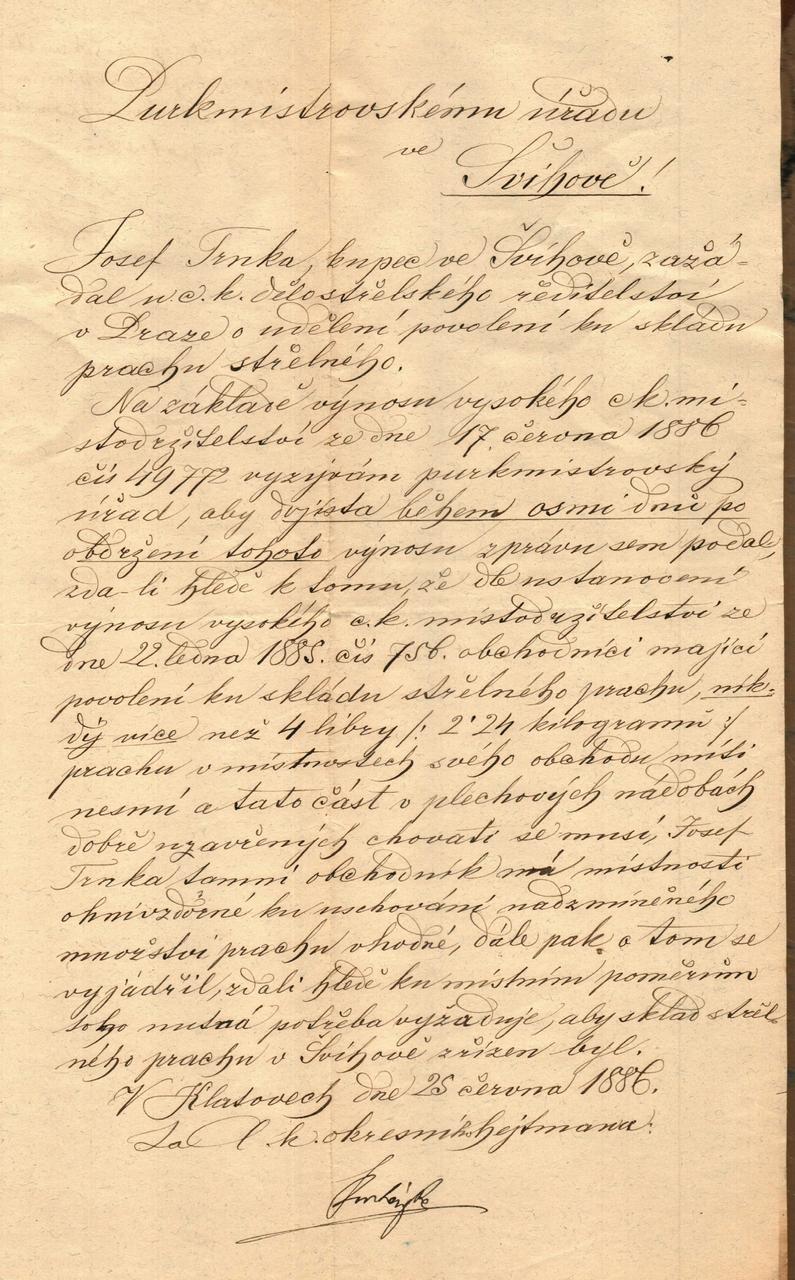 Purkmistrovskému úřadu
ve
Švihově!
Josef Trnka, kupec ve Švihově, zažá-
dal u c. k. dělostřelského ředitelství
v Praze o udělení povolení ku skládu
prachu střelného.
Na základě výnosu vysokého c k. mí-
stodržitelství ze dne 17. června 1886
čís 49772 vyzývám purkmistrovský
úřad, aby dojista během osmi dnů po
obdržení tohoto výnosu zprávu sem podal,
zda-li hledě k tomu, že dle ustanovení
výnosu vysokého c. k. místodržitelství ze
dne 22. ledna 1885. čís 756. obchodníci mající
povolení ku skládu střelného prachu, nik-
dý více než 4 libry /: 2'24 kilogramů :/
prachu v místnostech svého obchodu míti
nesmí a tato část v plechových nádobách
dobře uzavřených chovati se musí, Josef
Trnka tamní obchodník má místnosti
ohnivzdorné ku uschování nadzmíněného
množství prachu vhodné, dále pak o tom se
vyjádřil, zdali hledě ku místním poměrům
toho nutná potřeba vyžaduje, aby sklad střel-
ného prachu v Švihově zřízen byl.
V Klatovech dne 25 června 1886.
Za c. k. okresního hejtmana: